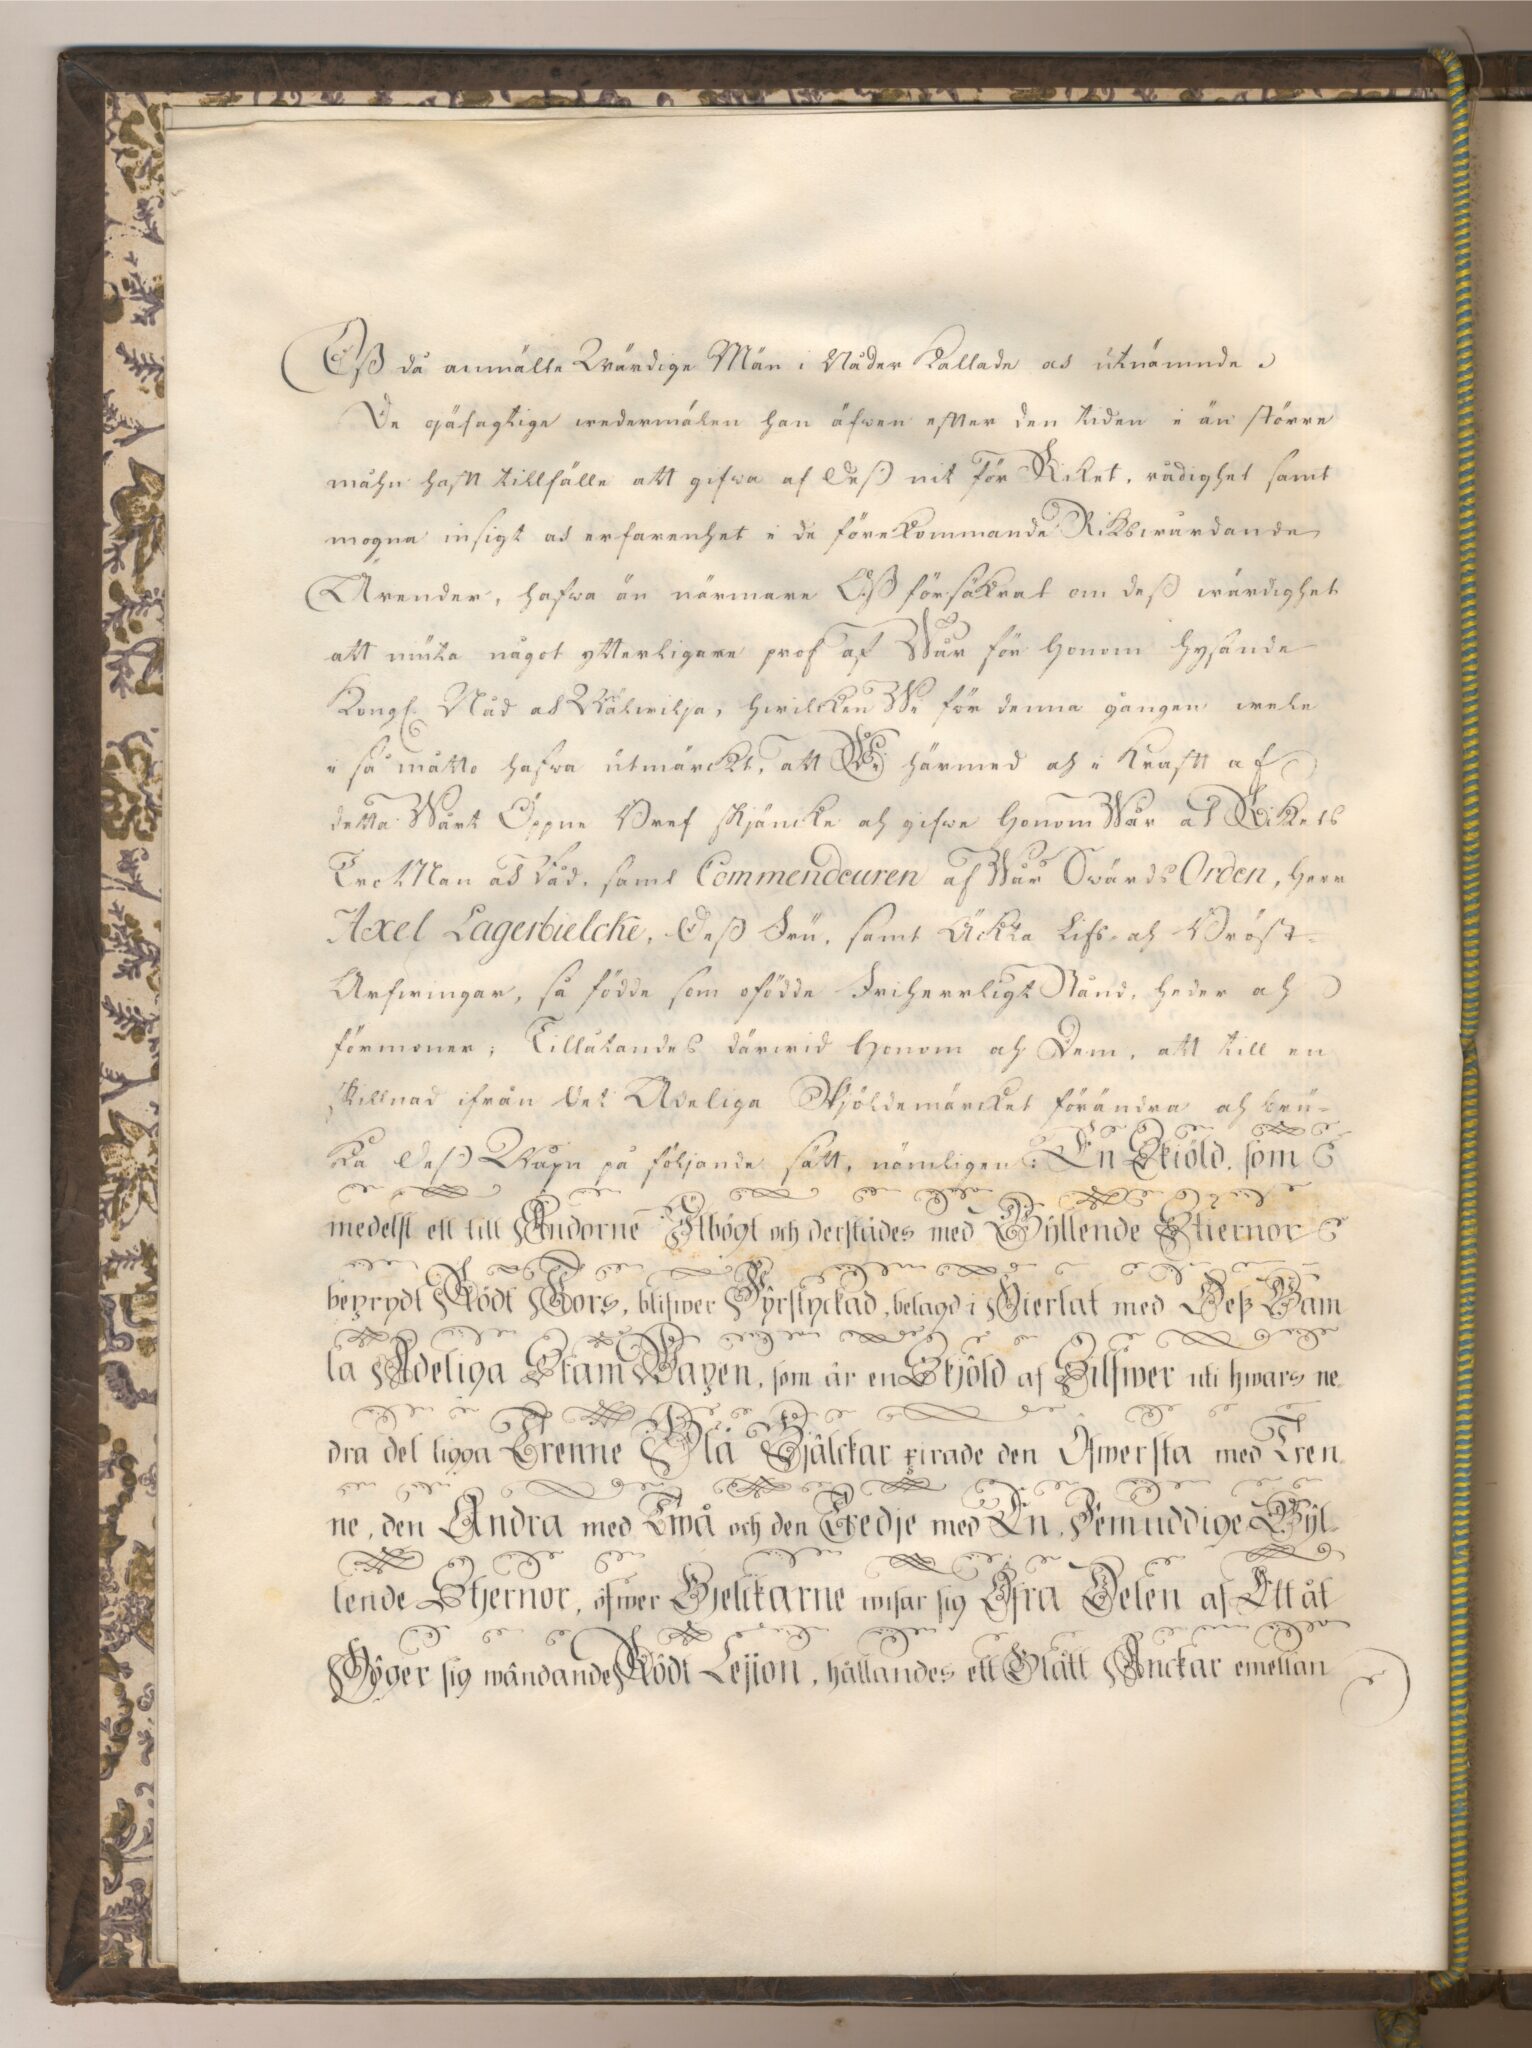 Oß då anmälte Wärdige Män i Nåder kallade och utnämnde.
De ojäfagtige wedermälen han äfwen efter den tiden i än större
måhn haft tillfälle att gifwa af Deß nit för Riket, rådighet samt
mogna insigt och erfarenhet i de förekommande Rikswårdande
Ärender, hafwa än närmare Oß försäkrat om deß wärdighet
att niuta något ytterligare prof af Wår för Honom hysande
Kongl. Nåd och Wälwilja, hwilcken Wi för denna gången wele
i så måtto hafwa utmärckt, att Wi härmed och i Kraft af
detta Wårt Öppne Bref skjäncke och gifwe Honom Wår och Rikets
Tro Man och Råd, samt Commendeuren af Wår Swärds Orden, Herr
Axel Lagerbielcke, Deß Fru, samt Äckta Lifs- och Bröst-
Arfwingar, så födde som ofödde Friherrligt Stånd, heder och
förmoner; Tillåtandes därwid Honom och Dem, att till en
skillnad ifrån det Adeliga Skjöldemärcket förändra och bru-
ka Deß Wapn på följande sätt, nämligen: En Skiöld, som
medelst ett till Ändorne Utbögt och derstädes med Gyllende Stiernor
beprydt Rödt Kors, blifwer Fyrstyckad, belagd i Hiertat med Deß Gam
la Adeliga Stam Wapen, som är en Skjöld af Silfwer uti hwars ne-
dra del ligga Trenne Blå Bjälckar zirade den Öfwersta med Tren-
ne, den Andra med Twå och den Tredje med En, Femuddige Gyl-
lende Stjernor, öfwer Bjelckarne wisar sig Öfra Delen af Ett åt
Höger sig wändande Rödt Lejion, hållandes ett Blått Anckar emellan